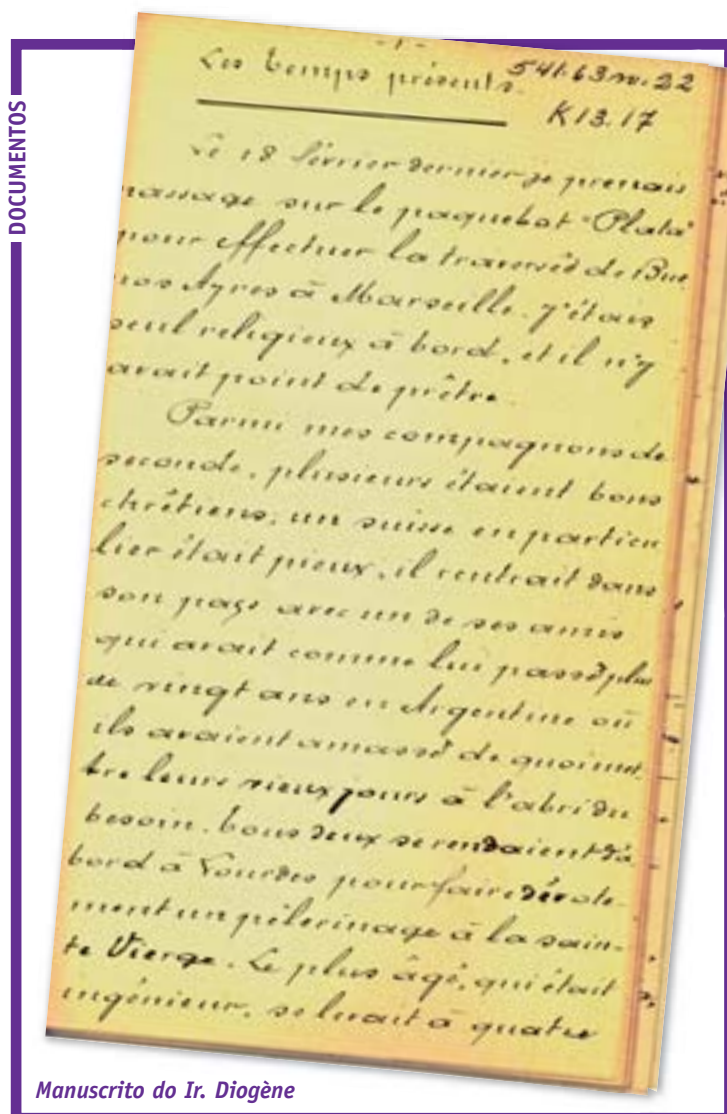 DOCUMENTOS
- 1 -
Les temps présents. 541.63 n. 22
K13.17
Le 18 février dernier je prenais
passage sur le paquebot "Plata"
pour effectuer la traversée de Bue
nos Ayres à Marseille. j'étais
seul religieux à bord, et il n'y
avait point de prêtre.
Parmi mes compagnons de
seconde, plusieurs étaient bons
chrétiens, un suisse en particu
lier était pieux, il rentrait dans
son pays avec un de ses amis
qui avait comme lui passé plus
de vingt ans en Argentine où
ils avaient amassé de quoi met
tre leurs vieux jours à l'abri du
besoin. tous deux se rendaient d'a
bord à Lourdes pour faire dévote-
ment un pèlerinage à la sain-
te Vierge. Le plus âgé, qui était
ingénieur, se levait à quatre
Manuscrito do Ir. Diogène